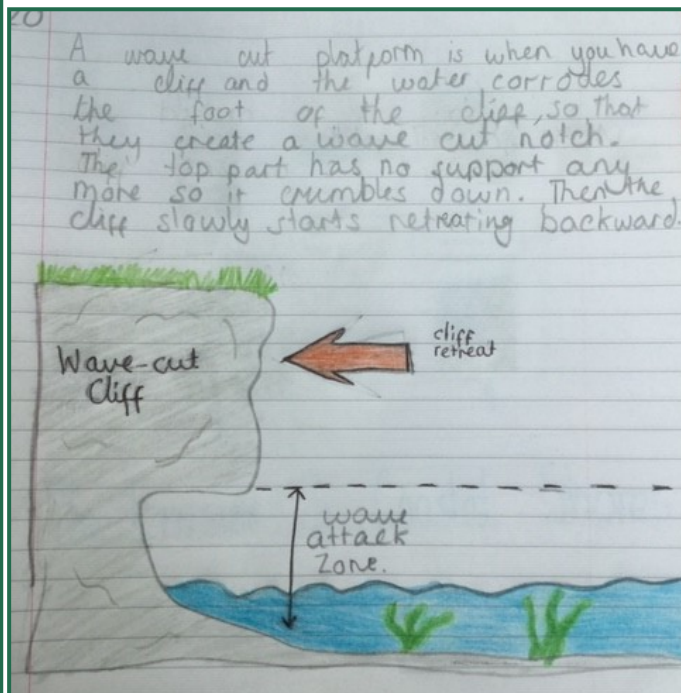 20
A wave cut platform is when you have
a cliff and the water corrodes
the foot of the cliff, so that
they create a wave cut notch.
The top part has no support any
more so it crumbles down. Then the
cliff slowly starts retreating backward.
cliff
retreat
Wave-cut
Cliff
wave
attack
zone.